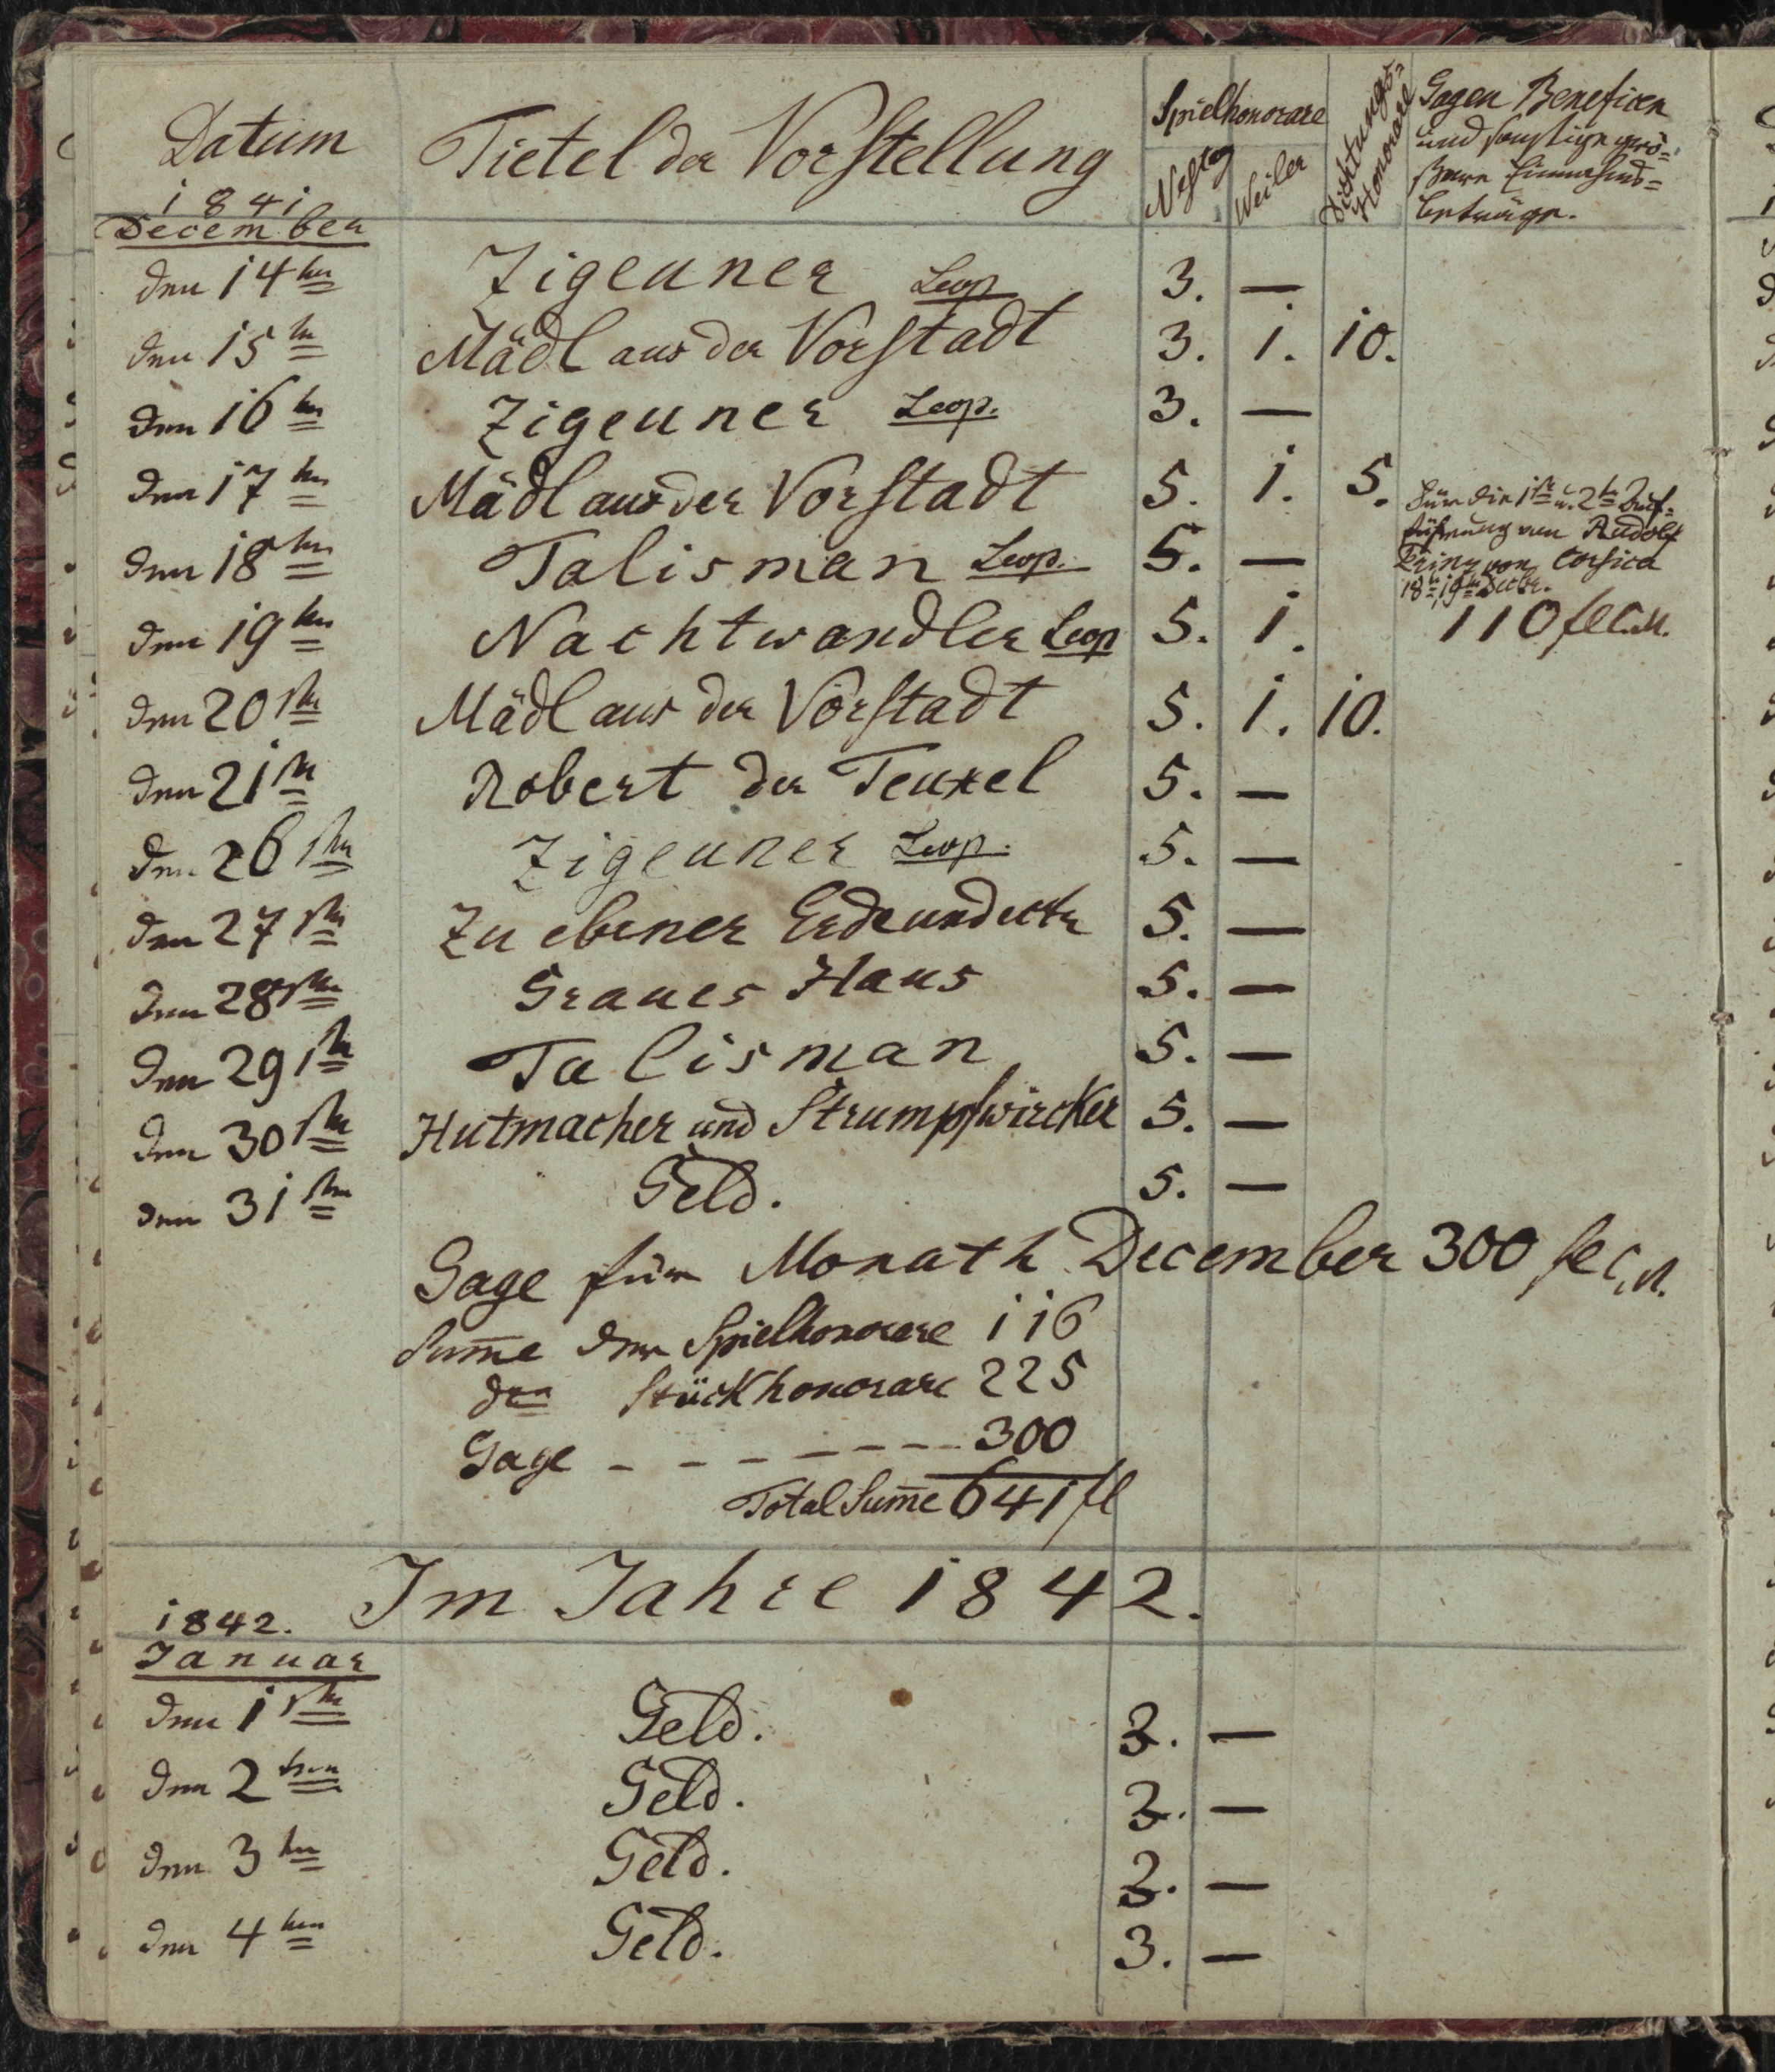 Datum
Tietel der Vorstellung
Spielhonorare
Nestroy
Weiler
Dichtungs=
Honorare
Gagen Beneficen
und sonstige grö=
ßere Einnahms=
beträge.
1841
December
den 14ten Zigeuner Leop 3. —
den 15ten Mädl aus der Vorstadt 3. 1. 10.
den 16ten Zigeuner Leop. 3. —
den 17ten Mädl aus der Vorstadt 5. 1. 5.
Für die 1te u. 2te Auf=
führung von Rudolf
Prinz von Corsica
18t 19t Decbr.
110 fl C.M.
den 18ten Talisman Leop. 5. —
den 19ten Nachtwandler Leop 5. 1.
den 20sten Mädl aus der Vorstadt 5. 1. 10.
den 21sten Robert der Teuxel 5. —
den 26sten Zigeuner Leop. 5. —
den 27sten Zu ebener Erde und ectr 5. —
den 28sten Graues Haus 5. —
den 29sten Talisman 5. —
den 30sten Hutmacher und Strumpfwircker 5. —
den 31sten Geld. 5. —
Gage für Monath December 300 fl C.M.
Sum̄e der Spielhonorare 116
der Stückhonorare 225
Gage – – – – – – – 300
Total Sum̄e 641 fl
Im Jahre 1842.
1842.
Januar
den 1sten Geld. 3. —
den 2ten Geld. 3. —
den 3ten Geld. 3. —
den 4ten Geld. 3. —